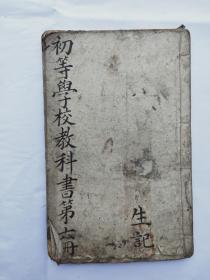 初等學校教科書第六册
生記